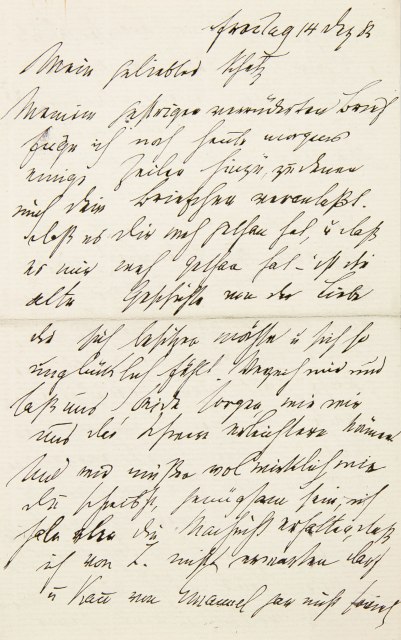 Freitag 14 Dez 82
Mein geliebter Schatz
Meinem gestrigen verrückten Brief
füge ich noch heute morgens
einige Zeilen hinzu, zu denen
mich dein Briefchen veranlaßt.
daß es Dir weh gethan hat, u daß
es mir weh gethan hat – ist die
alte Geschichte von der Liebe
die sich besitzen möchte u sich so
unglücklich fühlt. Verzeih mir und
laß uns beide sorgen wie wir
uns das Schwere erleichtern können
Und wir müßen wol wirklich wie
du schreibst, genügsam sein, ich
habe eben die Nachricht erhalten daß
ich von nicht erwarten darf
u kann von Emanuel gar nicht